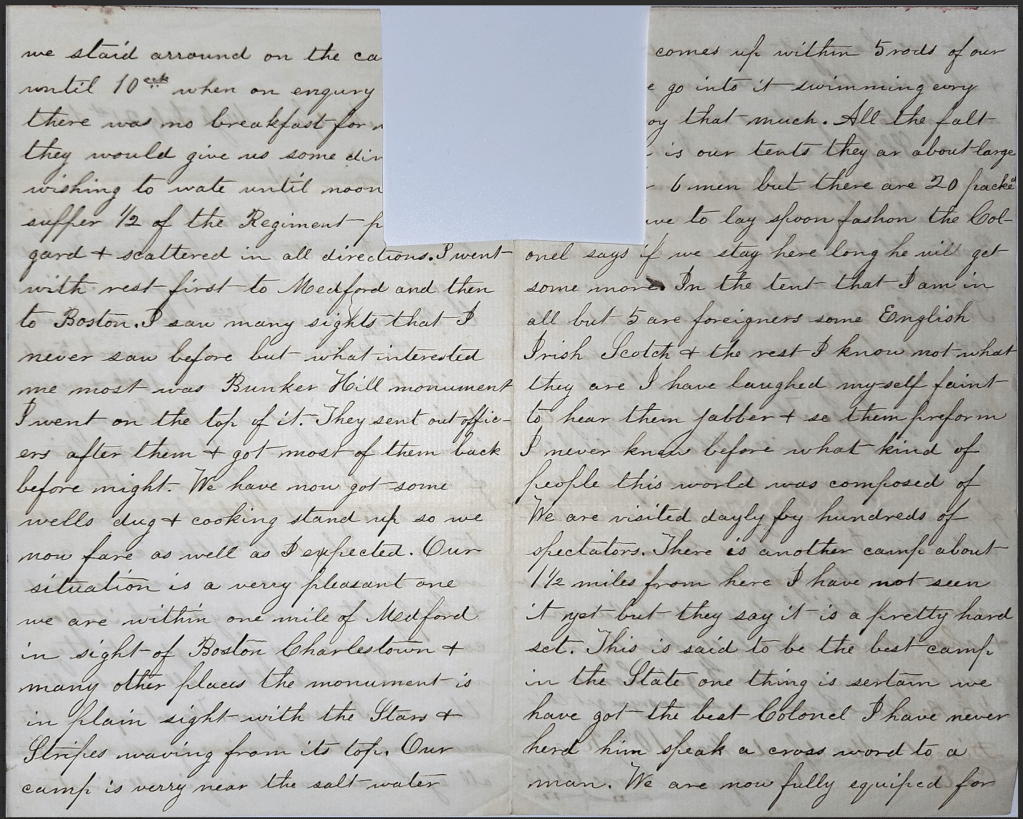 we staid arround on the ca
until 10 ock when on enqury
there was no breakfast for
they would give us some din
wishing to wate until noon
suffer 1/2 of the Regiment p
gard + scattered in all directions. I went
with rest first to Medford and then
to Boston. I saw many sights that I
never saw before but what interested
me most was Bunker Hill monument
I went on the top of it. They sent out offic-
ers after them + got most of them back
before night. We have now got some
wells dug + cooking stand up so we
now fare as well as I expected. Our
situation is a verry pleasant one
we are within one mile of Medford
in sight of Boston Charlestown +
many other places the monument is
in plain sight with the Stars +
Stripes waving from its top. Our
camp is verry near the salt water
comes up within 5 rods of our
go into it swimming evry
that much. All the falt
is our tents they ar about large
6 men but there are 20 packed
ve to lay spoon fashon the Col-
onel says if we stay here long he will get
some more In the tent that I am in
all but 5 are foreigners some English
Irish Scotch + the rest I know not what
they are I have laughed myself faint
to hear them jabber + se them preform
I never knew before what kind of
people this world was composed of
We are visited dayly by hundreds of
spectators. There is another camp about
1 1/2 miles from here I have not seen
it yet but they say it is a pretty hard
set. This is said to be the best camp
in the State one thing is sertain we
have got the best Colonel I have never
herd him speak a cross word to a
man. We are now fully equiped for